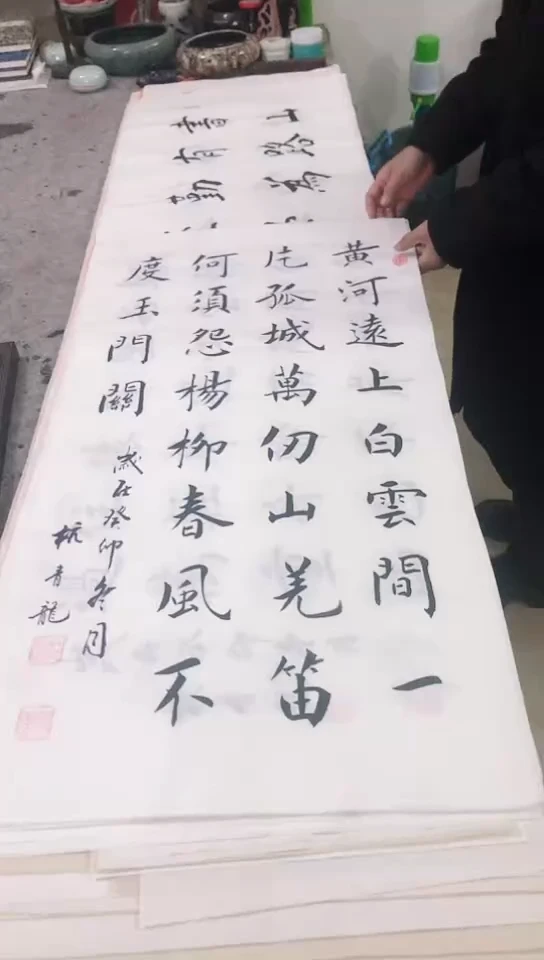 黄河遠上白雲間一
片孤城萬仞山羌笛
何須怨楊柳春風不
度玉門關
歲在癸卯冬月
杭青龍